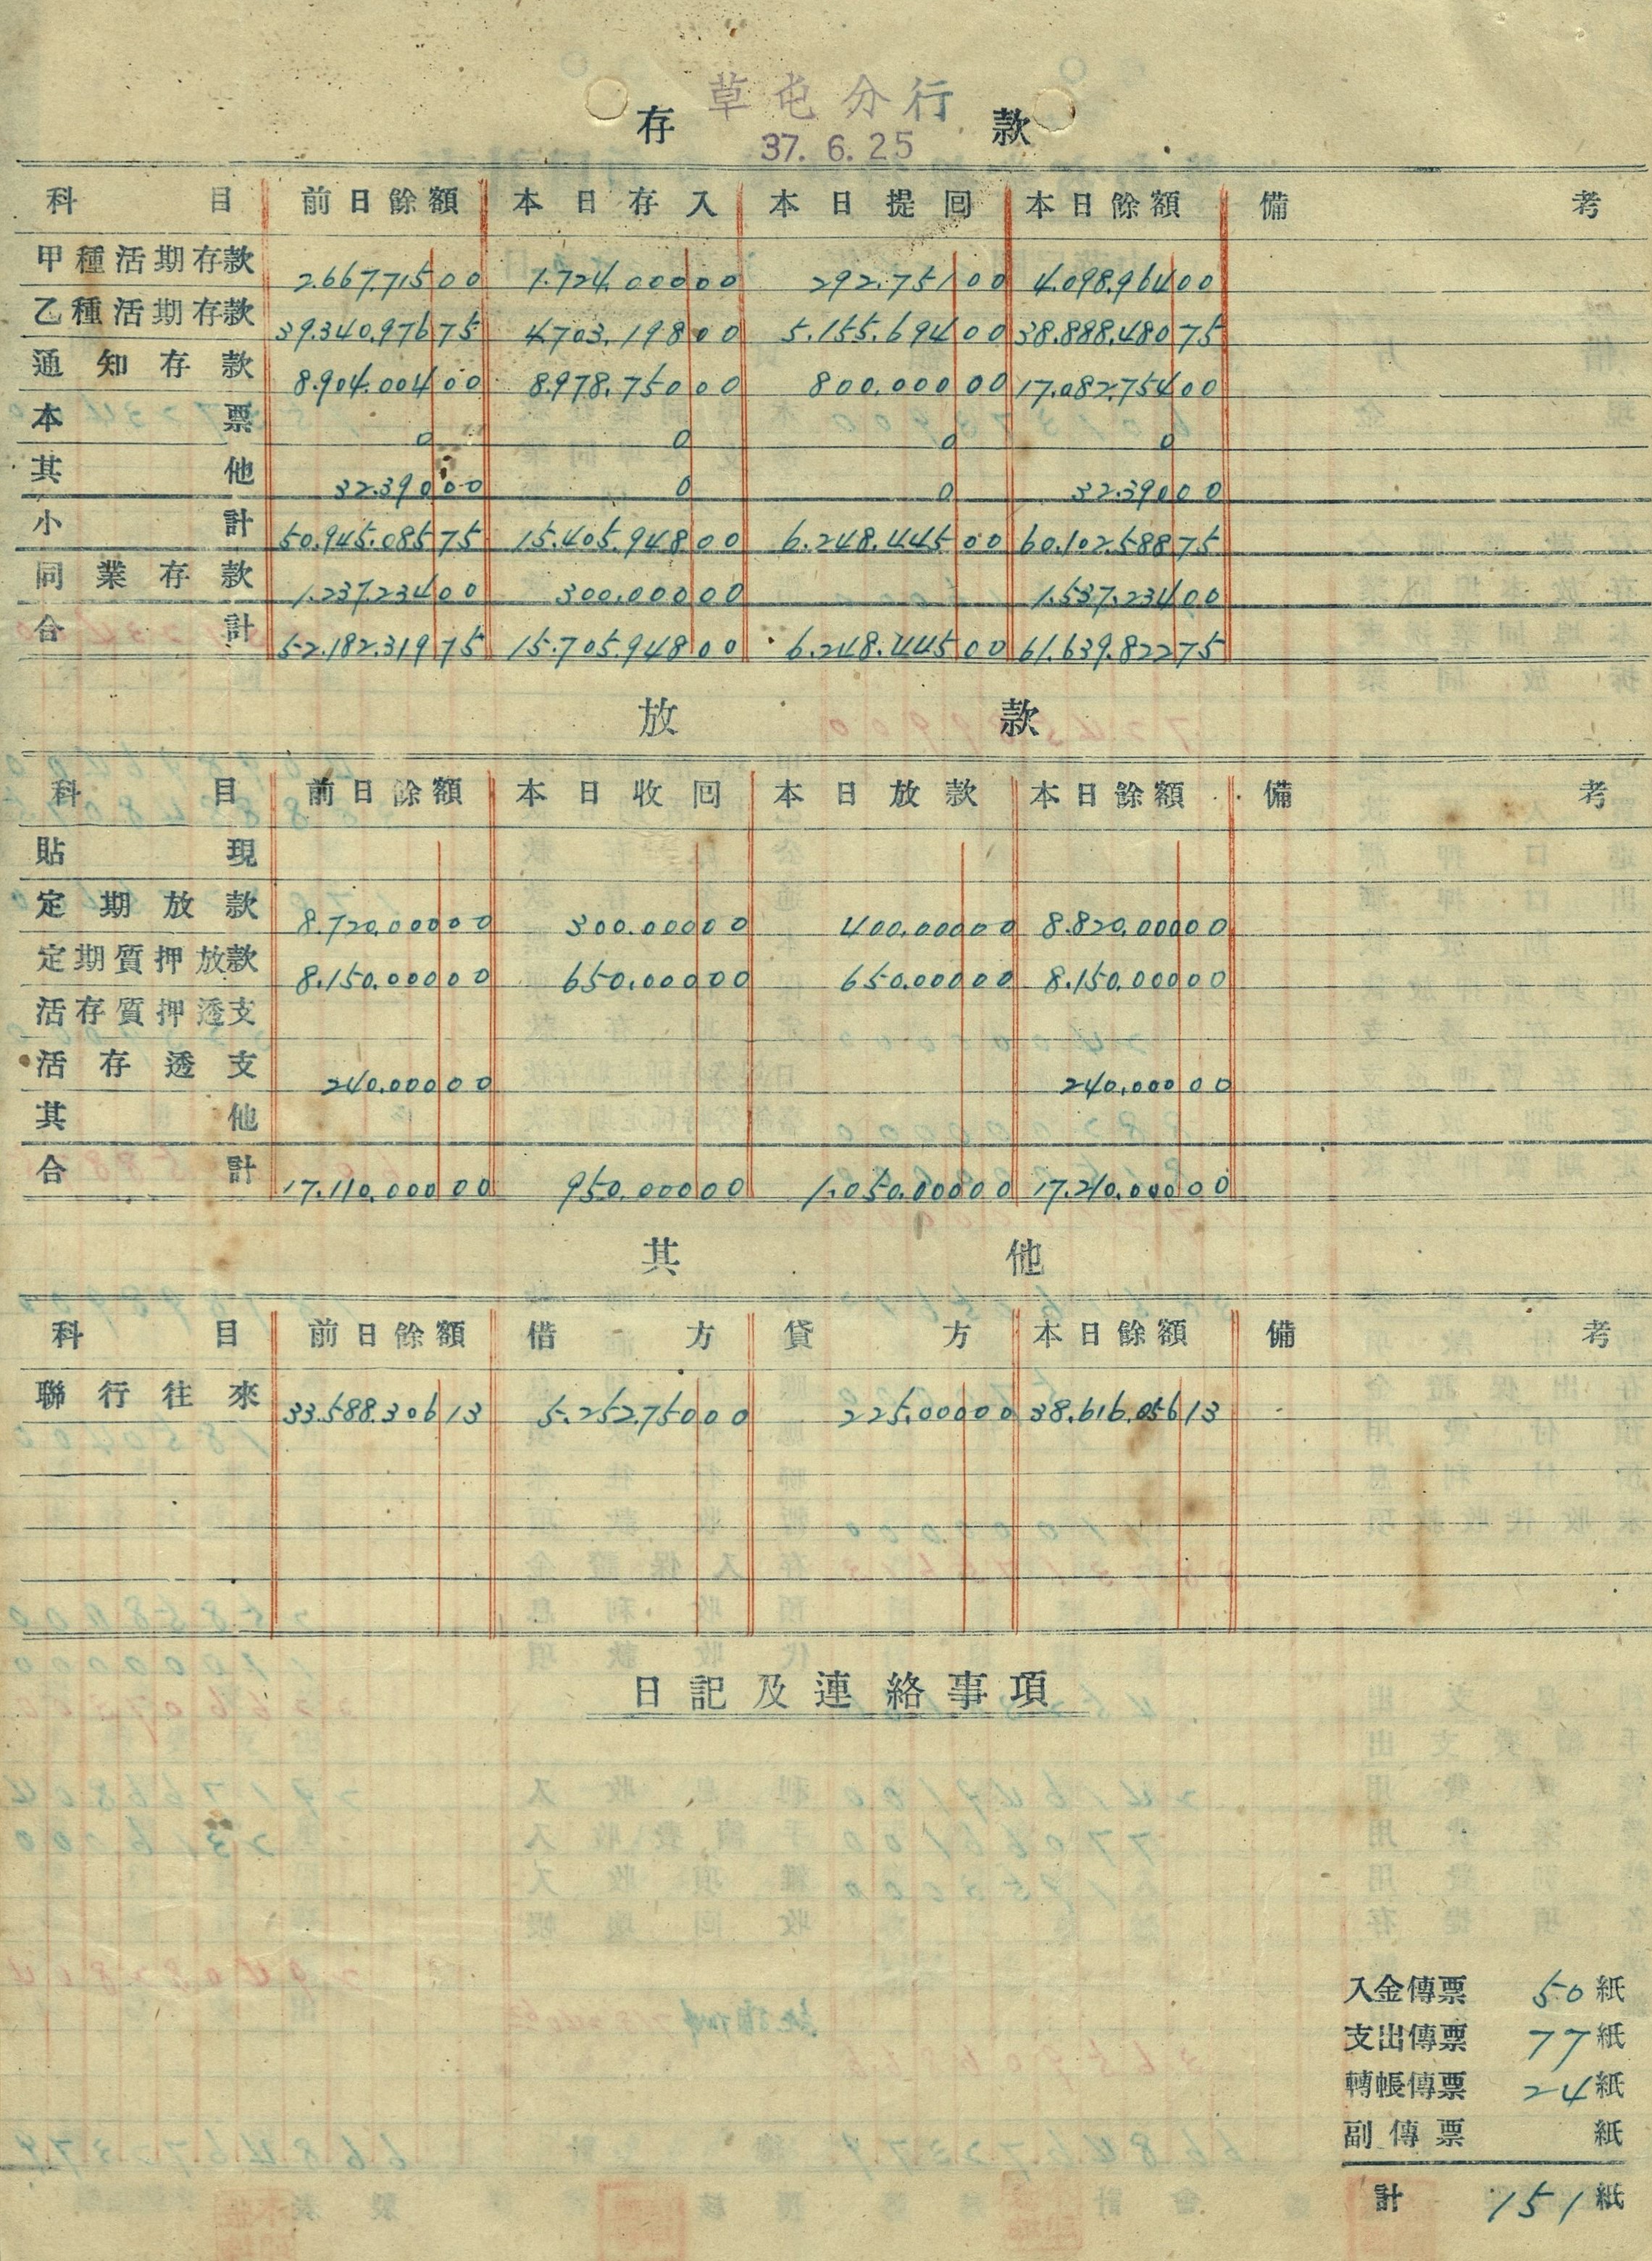 草屯分行
存 款
37. 6. 25
科目 前日餘額 本日存入 本日提囘 本日餘額 備考
甲種活期存款 2.667.715 00 1.724.000 00 292.751 00 4.098.964 00
乙種活期存款 39.340.976 75 4.703.198 00 5.155.694 00 38.888.480 75
通知存款 8.904.004 00 8.978.750 00 800.000 00 17.082.754 00
本票 0 0 0 0
其他 32.390 00 0 0 32.390 00
小計 50.945.085 75 15.405.948 00 6.248.445 00 60.102.588 75
同業存款 1.237.234 00 300.000 00 1.537.234 00
合計 52.182.319 75 15.705.948 00 6.248.445 00 61.639.822 75
放 款
科目 前日餘額 本日收囘 本日放款 本日餘額 備考
貼現
定期放款 8.720.000 00 300.000 00 400.000 00 8.820.000 00
定期質押放款 8.150.000 00 650.000 00 650.000 00 8.150.000 00
活存質押透支
活存透支 240.000 00 240.000 00
其他
合計 17.110.000 00 950.000 00 1.050.000 00 17.210.000 00
其 他
科目 前日餘額 借方 貸方 本日餘額 備考
聯行往來 33.588.306 13 5.252.750 00 225.000 00 38.616.056 13
日記及連絡事項
入金傳票 50 紙
支出傳票 77 紙
轉帳傳票 24 紙
副傳票 紙
計 151 紙